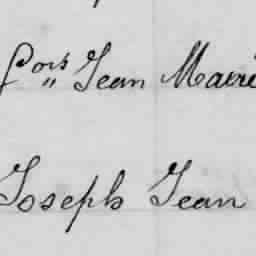 Fçois Jean Marie
Joseph Jean